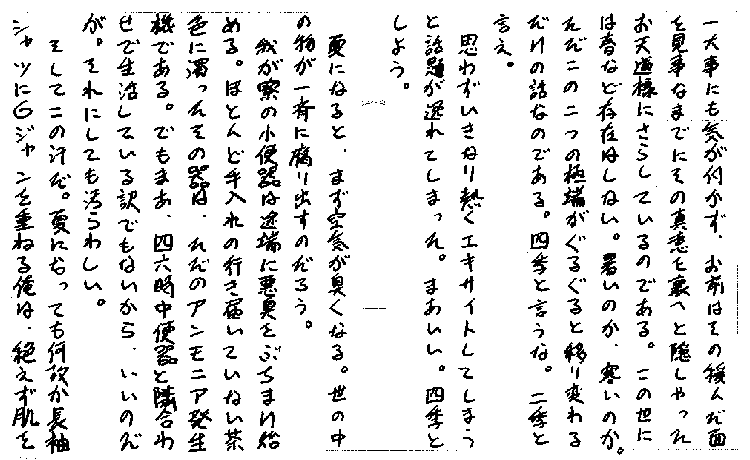 一大事にも気が付かず、お前はその緩んだ面
を見事なまでにその真意を裏へと隠しやった
お天道様にさらしているのである。この世に
は春など存在はしない。暑いのか、寒いのか。
ただこの二つの極端がぐるぐると移り変わる
だけの話なのである。四季と言うな。二季と
言え。
思わずいきなり熱くエキサイトしてしまう
と話題が逸れてしまった。まあいい。四季と
しよう。
夏になると、まず空気が臭くなる。世の中
の物が一斉に腐り出すのだろう。
我が寮の小便器は途端に悪臭をぶちまけ始
める。ほとんど手入れの行き届いていない茶
色に濁ったその器は、ただのアンモニア発生
機である。でもまあ、四六時中便器と隣合わ
せで生活している訳でもないから、いいのだ
が。それにしても汚らわしい。
そしてこの汗だ。夏になっても何故か長袖
シャツにGジャンを重ねる俺は、絶えず肌を